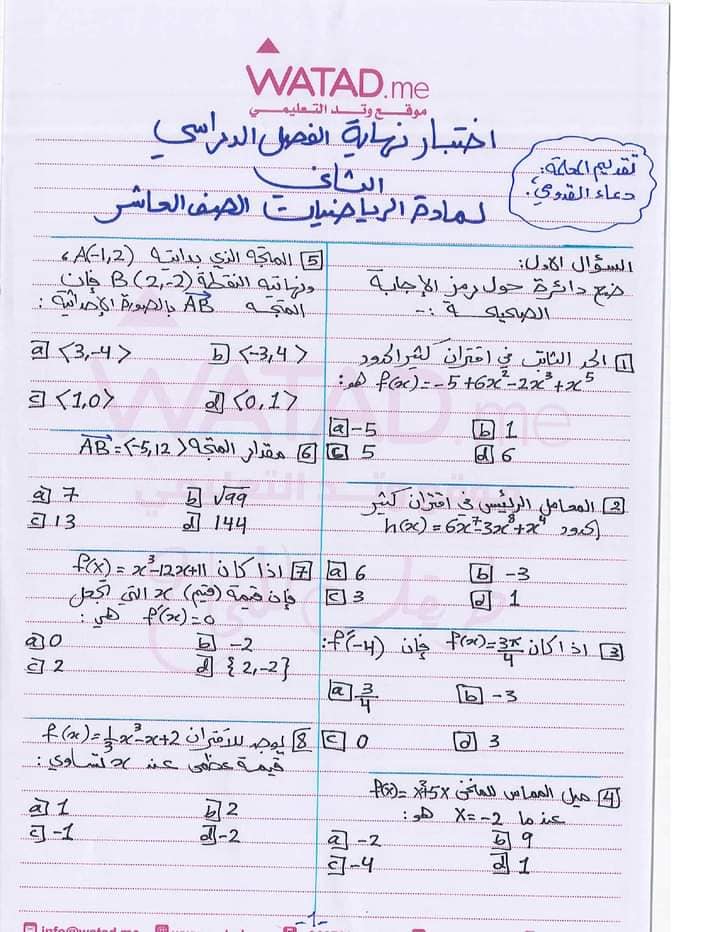 WATAD.me
موقع وتد التعليمي
اختبار نهاية الفصل الدراسي
الثاني
لمادة الرياضيات الصف العاشر
تقديم المعلمة:
دعاء القدومي.
السؤال الاول:
ضع دائرة حول رمز الإجابة
الصحيحة :-
1 الحد الثابت في اقتران كثير الحدود
f(x)=-5+6x²-2x³+x⁵ هو:
a -5 b 1
c 5 d 6
2 المعامل الرئيس في اقتران كثير
الحدود h(x)=6x⁷-3x⁸+x⁴
a 6 b -3
c 3 d 1
3 اذا كان f(x)=3π/4 فإن f'(-4):
a 3/4 b -3
c 0 d 3
4 ميل المماس للمنحنى f(x)=x²+5x
عندما x=-2 هو:
a -2 b 9
c -4 d 1
5 المتجه الذي بدايته A(-1,2)،
ونهايته النقطة B(2,-2) فإن
المتجه AB بالصورة الإحداثية:
a <3,-4> b <-3,4>
c <1,0> d <0,1>
6 مقدار المتجه AB=<-5,12>
a 7 b √99
c 13 d 144
7 اذا كان f(x)=x³-12x+11
فإن قيمة (قيم) x التي تجعل
f'(x)=0 هي:
a 0 b -2
c 2 d {2,-2}
8 يوجد للاقتران f(x)=1/3x³-x+2
قيمة عظمى عند x تساوي:
a 1 b 2
c -1 d -2
-1-